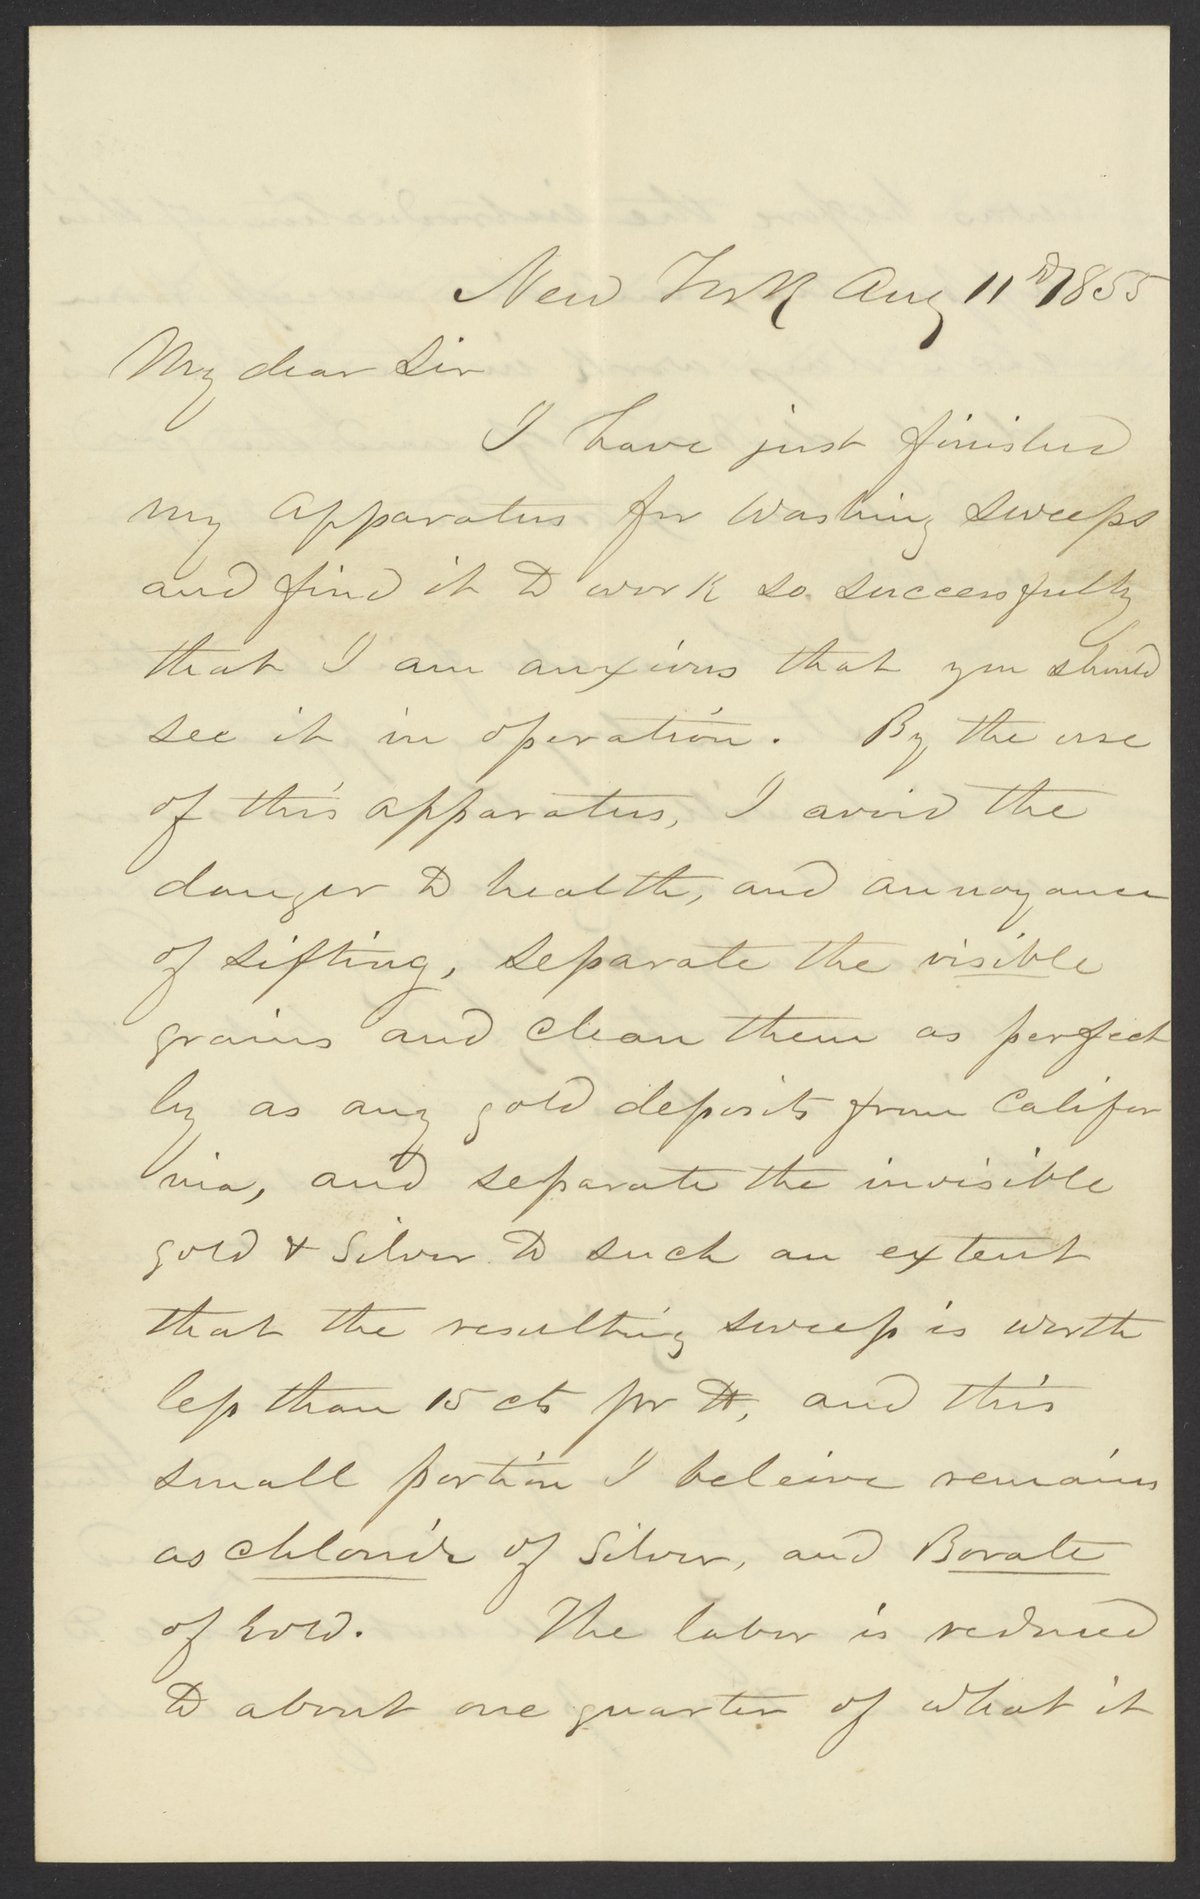 New York Aug 11th 1855
My dear Sir
I have just finished
my apparatus for washing sweeps
and find it to work so successfully
that I am anxious that you should
see it in operation. By the use
of this apparatus, I avoid the
danger to health, and annoyance
of sifting, separate the visible
grains and clean them as perfect
ly as any gold deposits from Califor
nia, and separate the invisible
gold & silver to such an extent
that the resulting sweep is worth
less than 15 cts pr ℔, and this
small portion I beleive remains
as chloride of silver, and Borate
of Gold. The labor is reduced
to about one quarter of what it